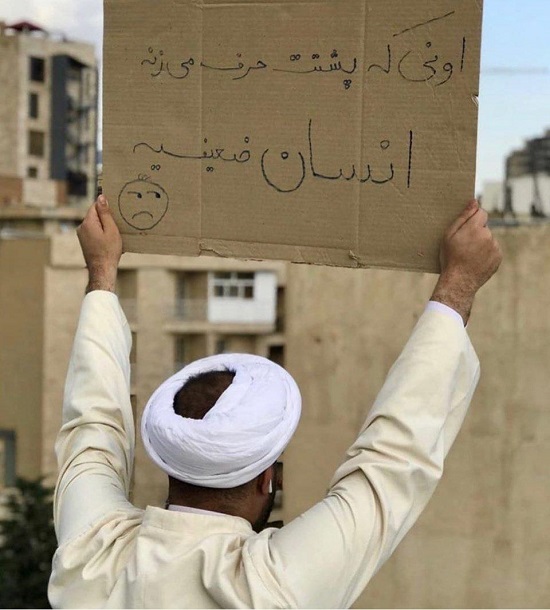 اونی که پشتت حرف می زنه
انسان ضعیفیه